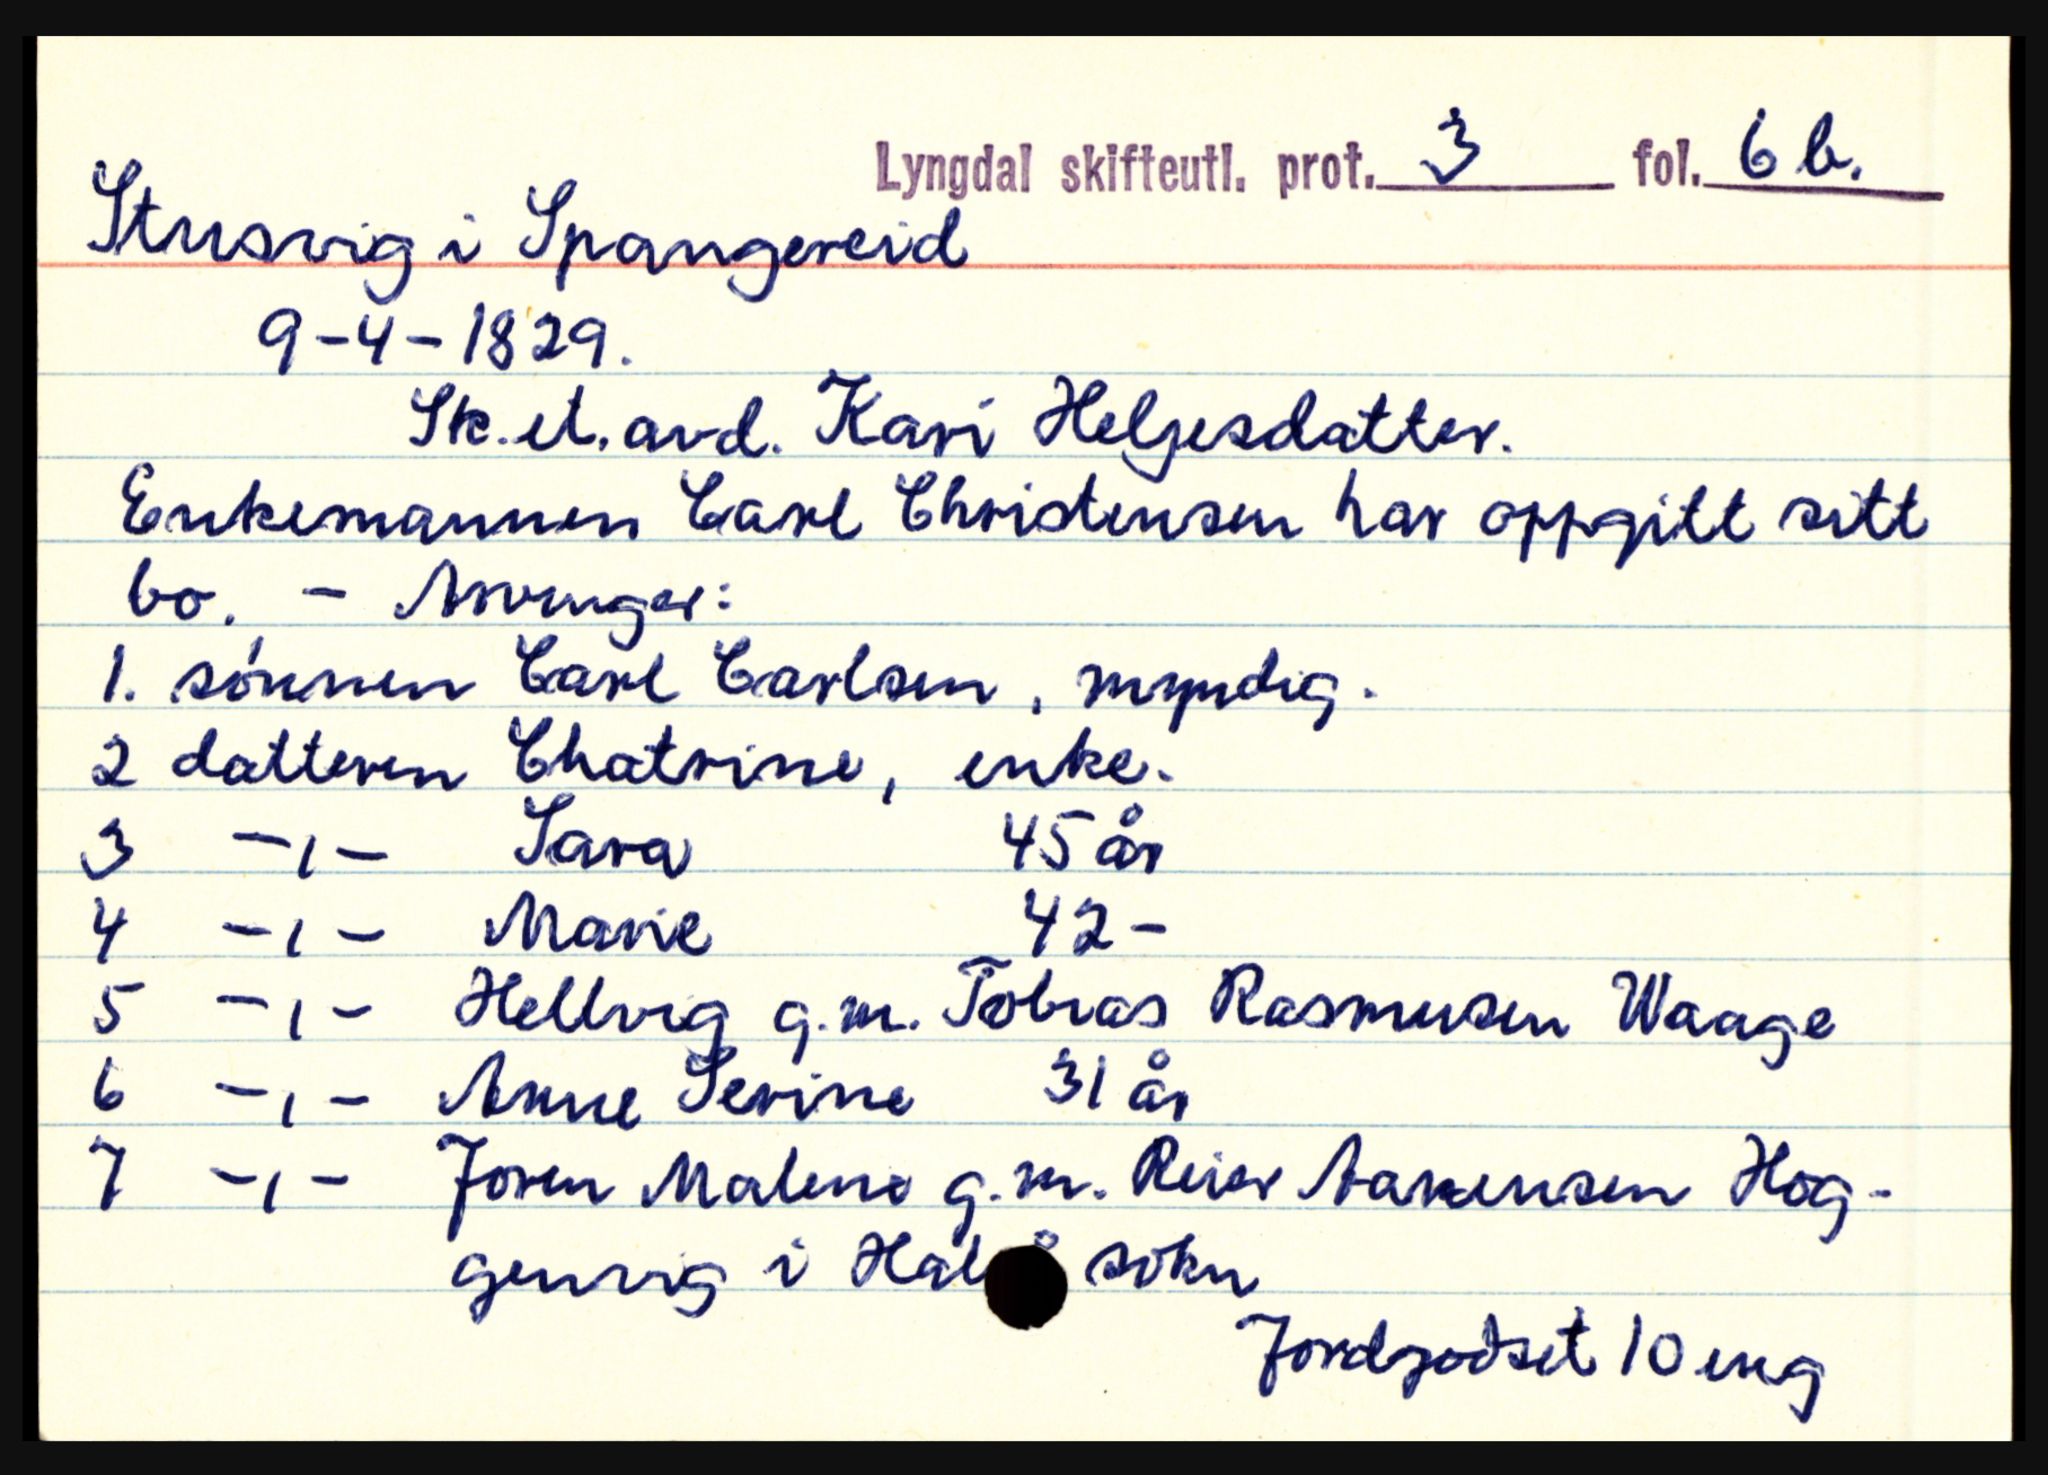 Lyngdal skifteutl. prot. 3 fol. 6 b.
Stusvig i Spangereid
9-4-1829.
Sk. et. avd. Kari Heljesdatter.
Enkemannen Carl Christensen har oppgitt sitt
bo. - Arvinger:
1. sönnen Carl Carlsen, myndig.
2 datteren Chatrine, enke.
3 -ı- Sara 45 år
4 -ı- Marie 42 -
5 -ı- Hellvig g.m. Tobias Rasmusen Waage
6 -ı- Anne Serine 31 år
7 -ı- Joren Malene g.m. Reier Aanensen Hog-
genvig i sokn
Jordgodset 10 eng